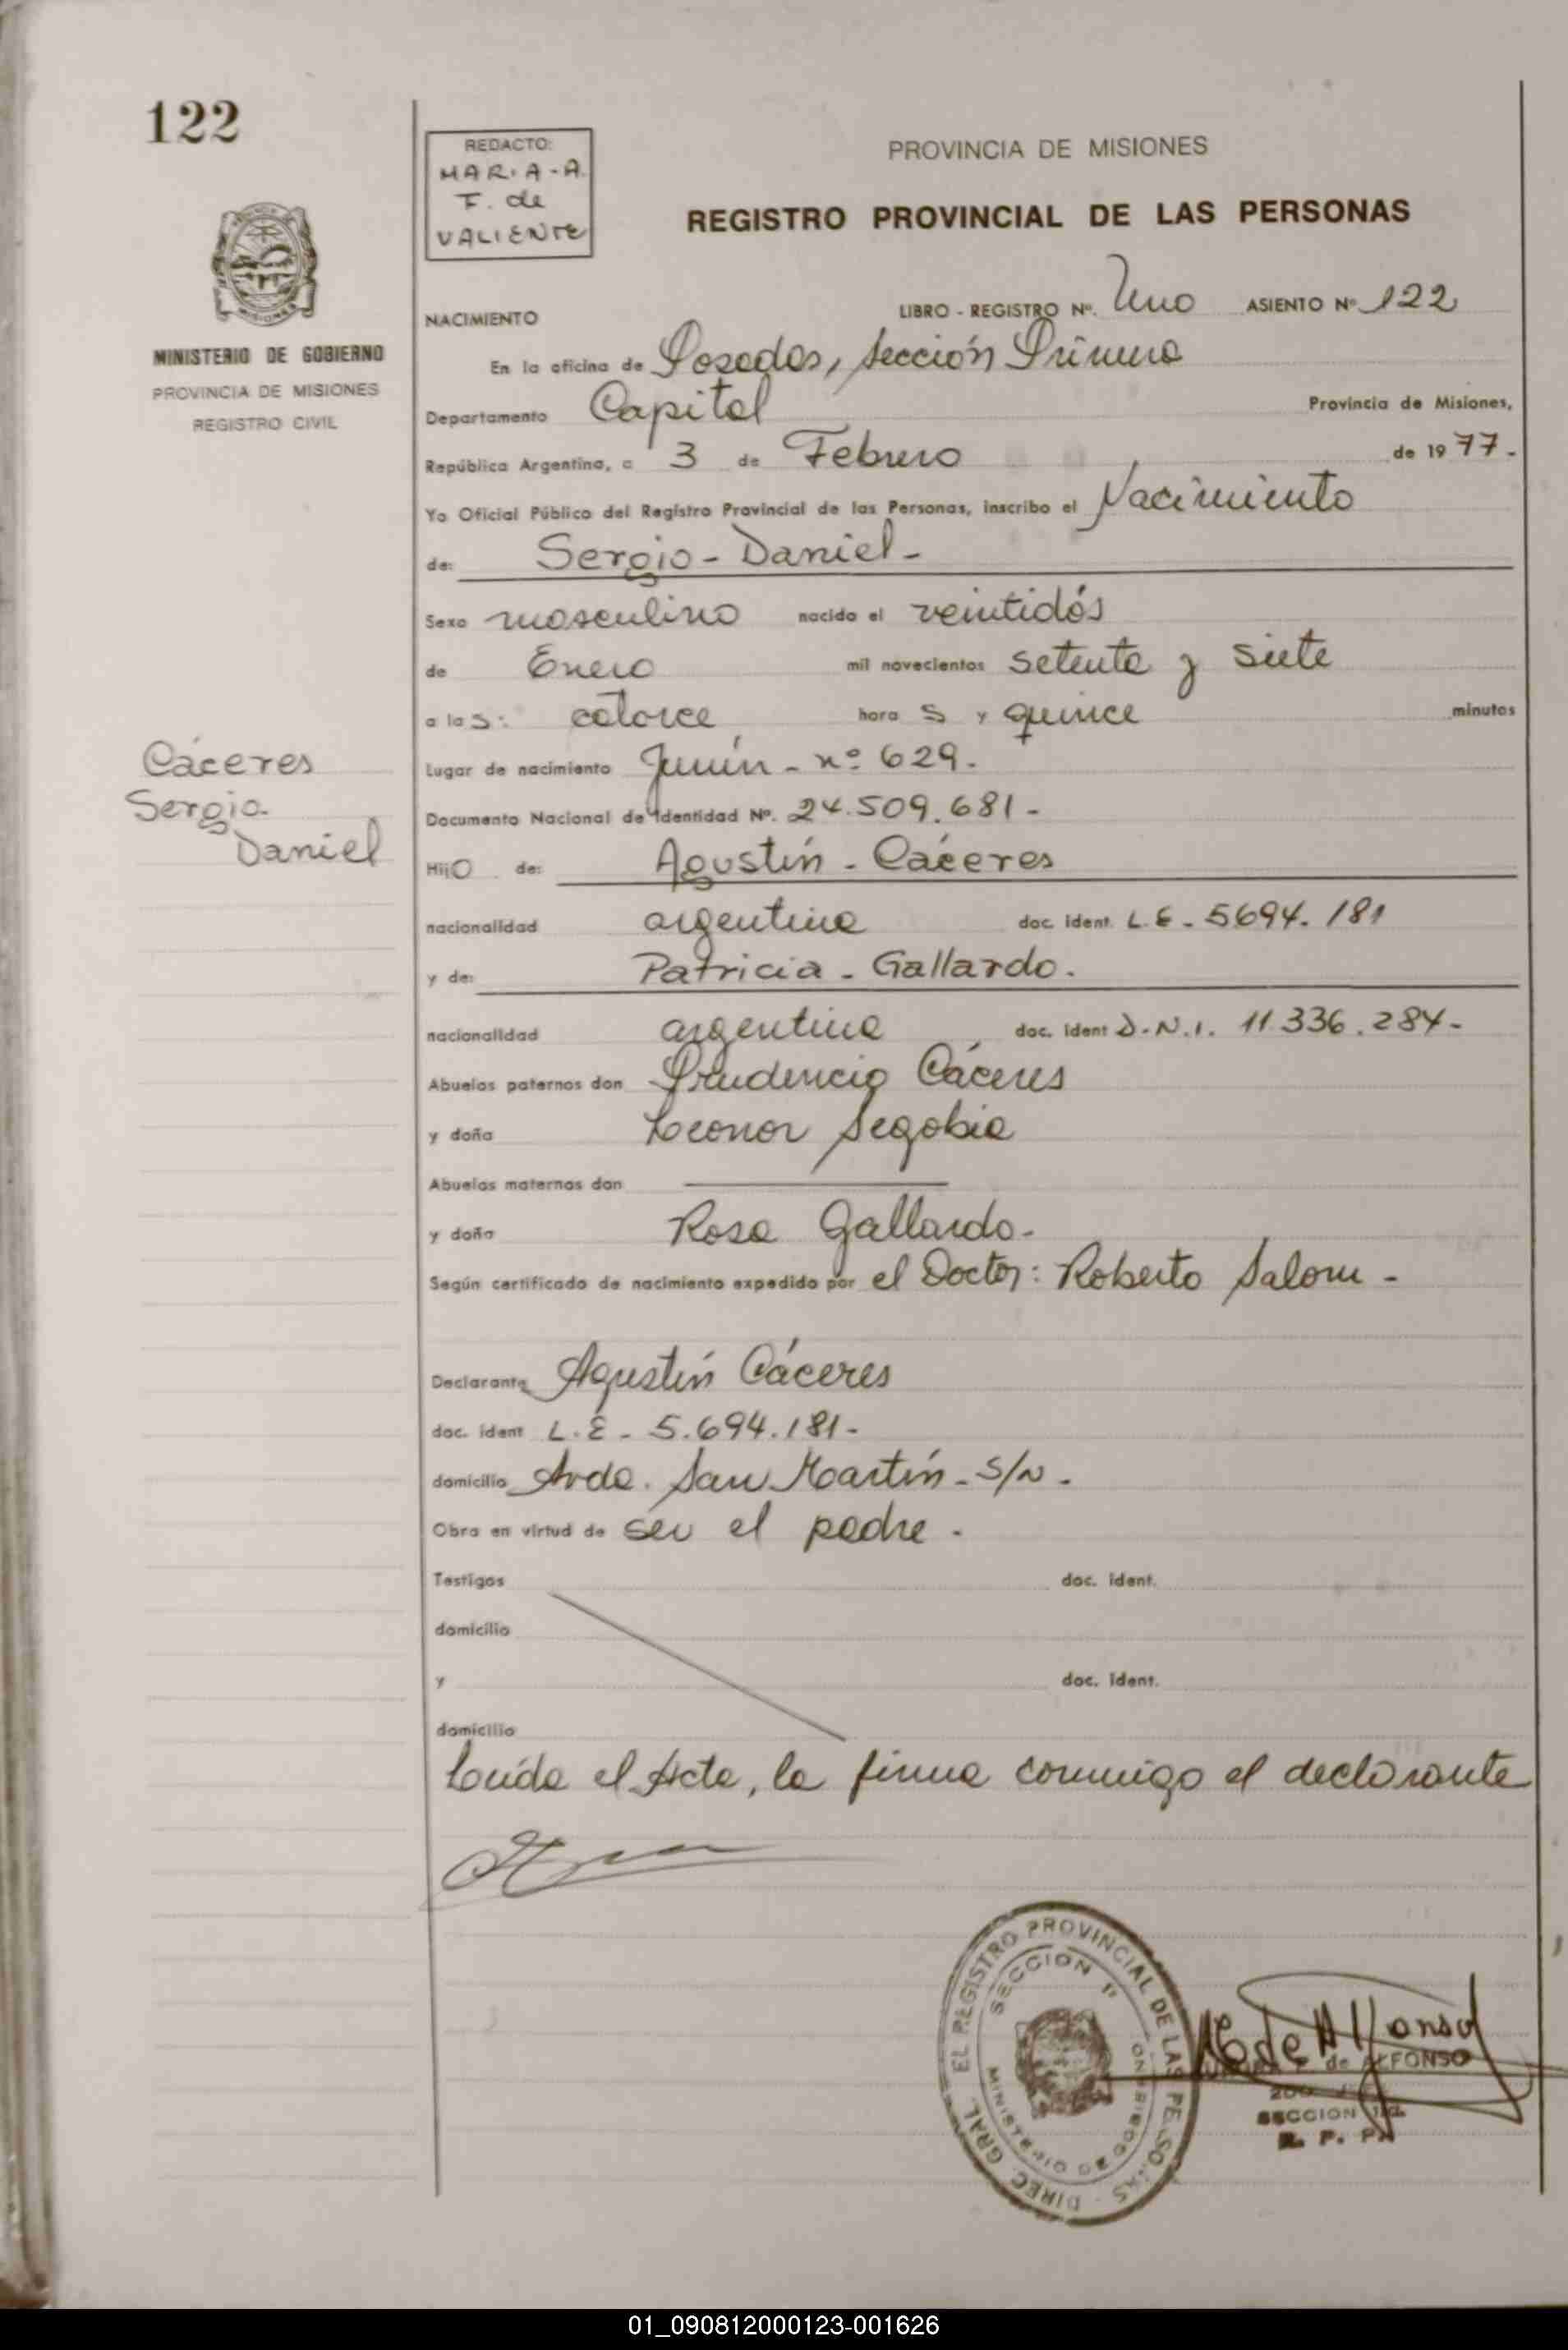 122
REDACTO:
MARIA-A.
F. de
VALIENTE
PROVINCIA DE MISIONES
REGISTRO PROVINCIAL DE LAS PERSONAS
MISIONES
MINISTERIO DE GOBIERNO
PROVINCIA DE MISIONES
REGISTRO CIVIL
NACIMIENTO LIBRO - REGISTRO Nº. Uno ASIENTO Nº 122
En la oficina de Posadas, Sección Primera
Departamento Capital Provincia de Misiones,
República Argentina, a 3 de Febrero de 1977.-
Yo Oficial Público del Registro Provincial de las Personas, inscribo el Nacimiento
de: Sergio - Daniel -
Sexo masculino nacido el veintidós
de Enero mil novecientos setenta y siete
a las: catorce horas y quince minutos
Lugar de nacimiento Junín - nº 629.
Documento Nacional de Identidad Nº. 24.509.681-
Cáceres
Sergio
Daniel
Hijo de: Agustín - Cáceres
nacionalidad argentina doc. ident. L.E - 5694.181
y de: Patricia - Gallardo.
nacionalidad argentina doc. ident D.N.I. 11.336.284-
Abuelos paternos don Prudencio Cáceres
y doña Leonor Segobia
Abuelos maternos don
y doña Rosa Gallardo.
Según certificado de nacimiento expedido por el Doctor: Roberto Salom -
Declarante Agustín Cáceres
doc. ident L.E - 5.694.181-
domicilio Avda. San Martín - S/N -
Obra en virtud de ser el padre.
Testigos doc. ident.
domicilio
y doc. ident.
domicilio
Leída el Acta, la firma conmigo el declarante
EL REGISTRO PROVINCIAL DE LAS PERSONAS - DIREC. GRAL.
SECCION 1ª
MINISTERIO DE GOBIERNO
de ALFONSO
SECCION 1ª
R. P. P.
01_090812000123-001626